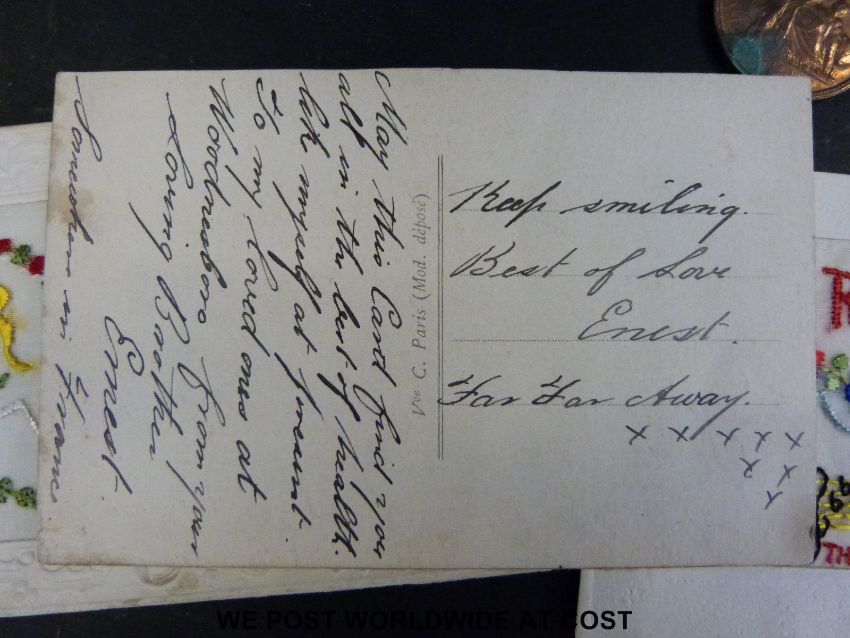 May this Card find you
all in the best of health.
like myself at present.
To my loved ones at
Woodnesboro from your
Loving Brother
Ernest
Somewhere in France.
Vve C. Paris (Mod. déposé)
Keep smiling.
Best of Love
Enest.
Far Far Away.
x x x x x
x x
x
TH
WE POST WORLDWIDE AT COST